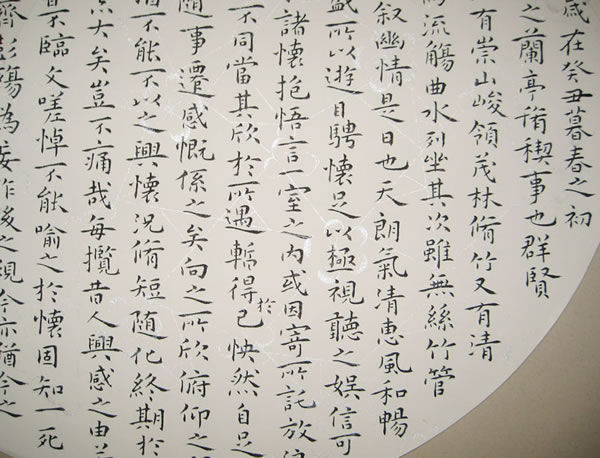 歲在癸丑暮春之初
之蘭亭脩禊事也群賢
有崇山峻領茂林脩竹又有清
為流觴曲水列坐其次雖無絲竹管
敘幽情是日也天朗氣清惠風和暢
盛所以遊目騁懷足以極視聽之娛信可
諸懷抱悟言一室之內或因寄所託放浪
不同當其欣於所遇暫得於己怏然自足
隨事遷感慨係之矣向之所欣俯仰之
不能不以之興懷況脩短隨化終期於
大矣豈不痛哉每攬昔人興感之由若
不臨文嗟悼不能喻之於懷固知一死
齊彭殤為妄作後之視今亦猶今之